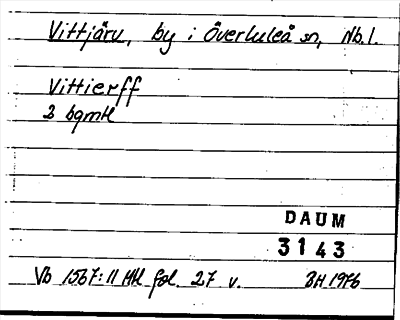 Vittjärv, by i Överluleå sn, Nb.l.
Vittierff
2 bqmtl
DAUM
3143
Vb 1567:11 Mtl fol. 27 v. BH 1976